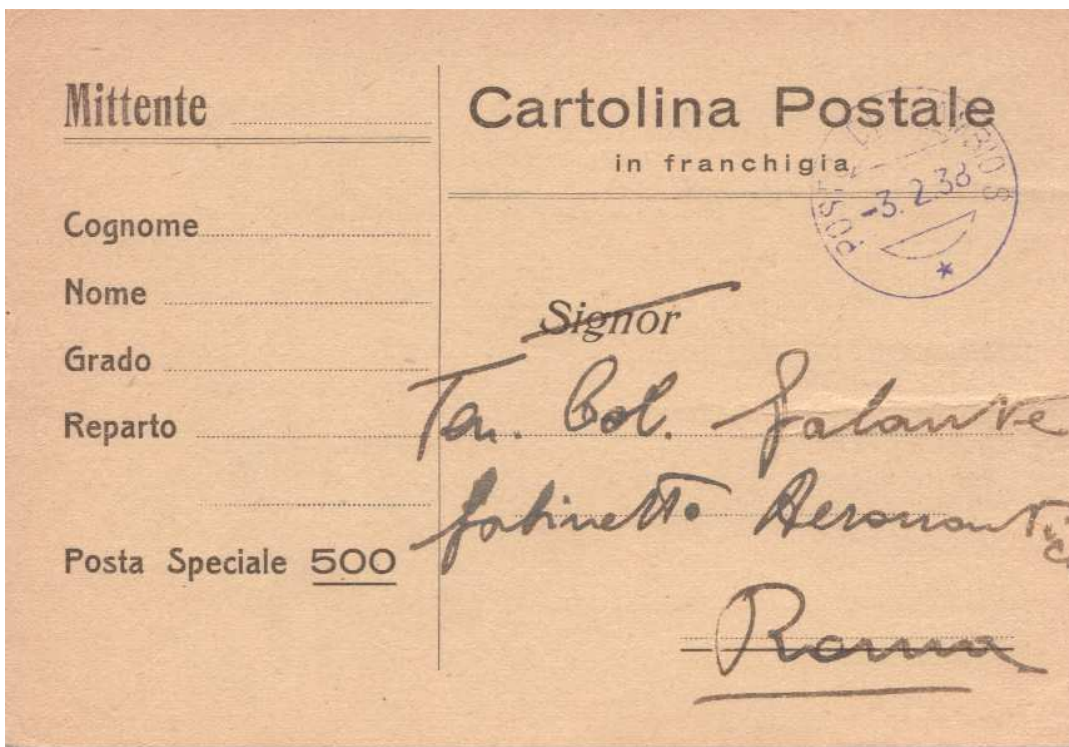 Mittente
Cognome
Nome
Grado
Reparto
Posta Speciale 500
Cartolina Postale
in franchigia
-3.2.38
Signor
Ten. Col. Galante
Gabinetto Aeronautica
Roma